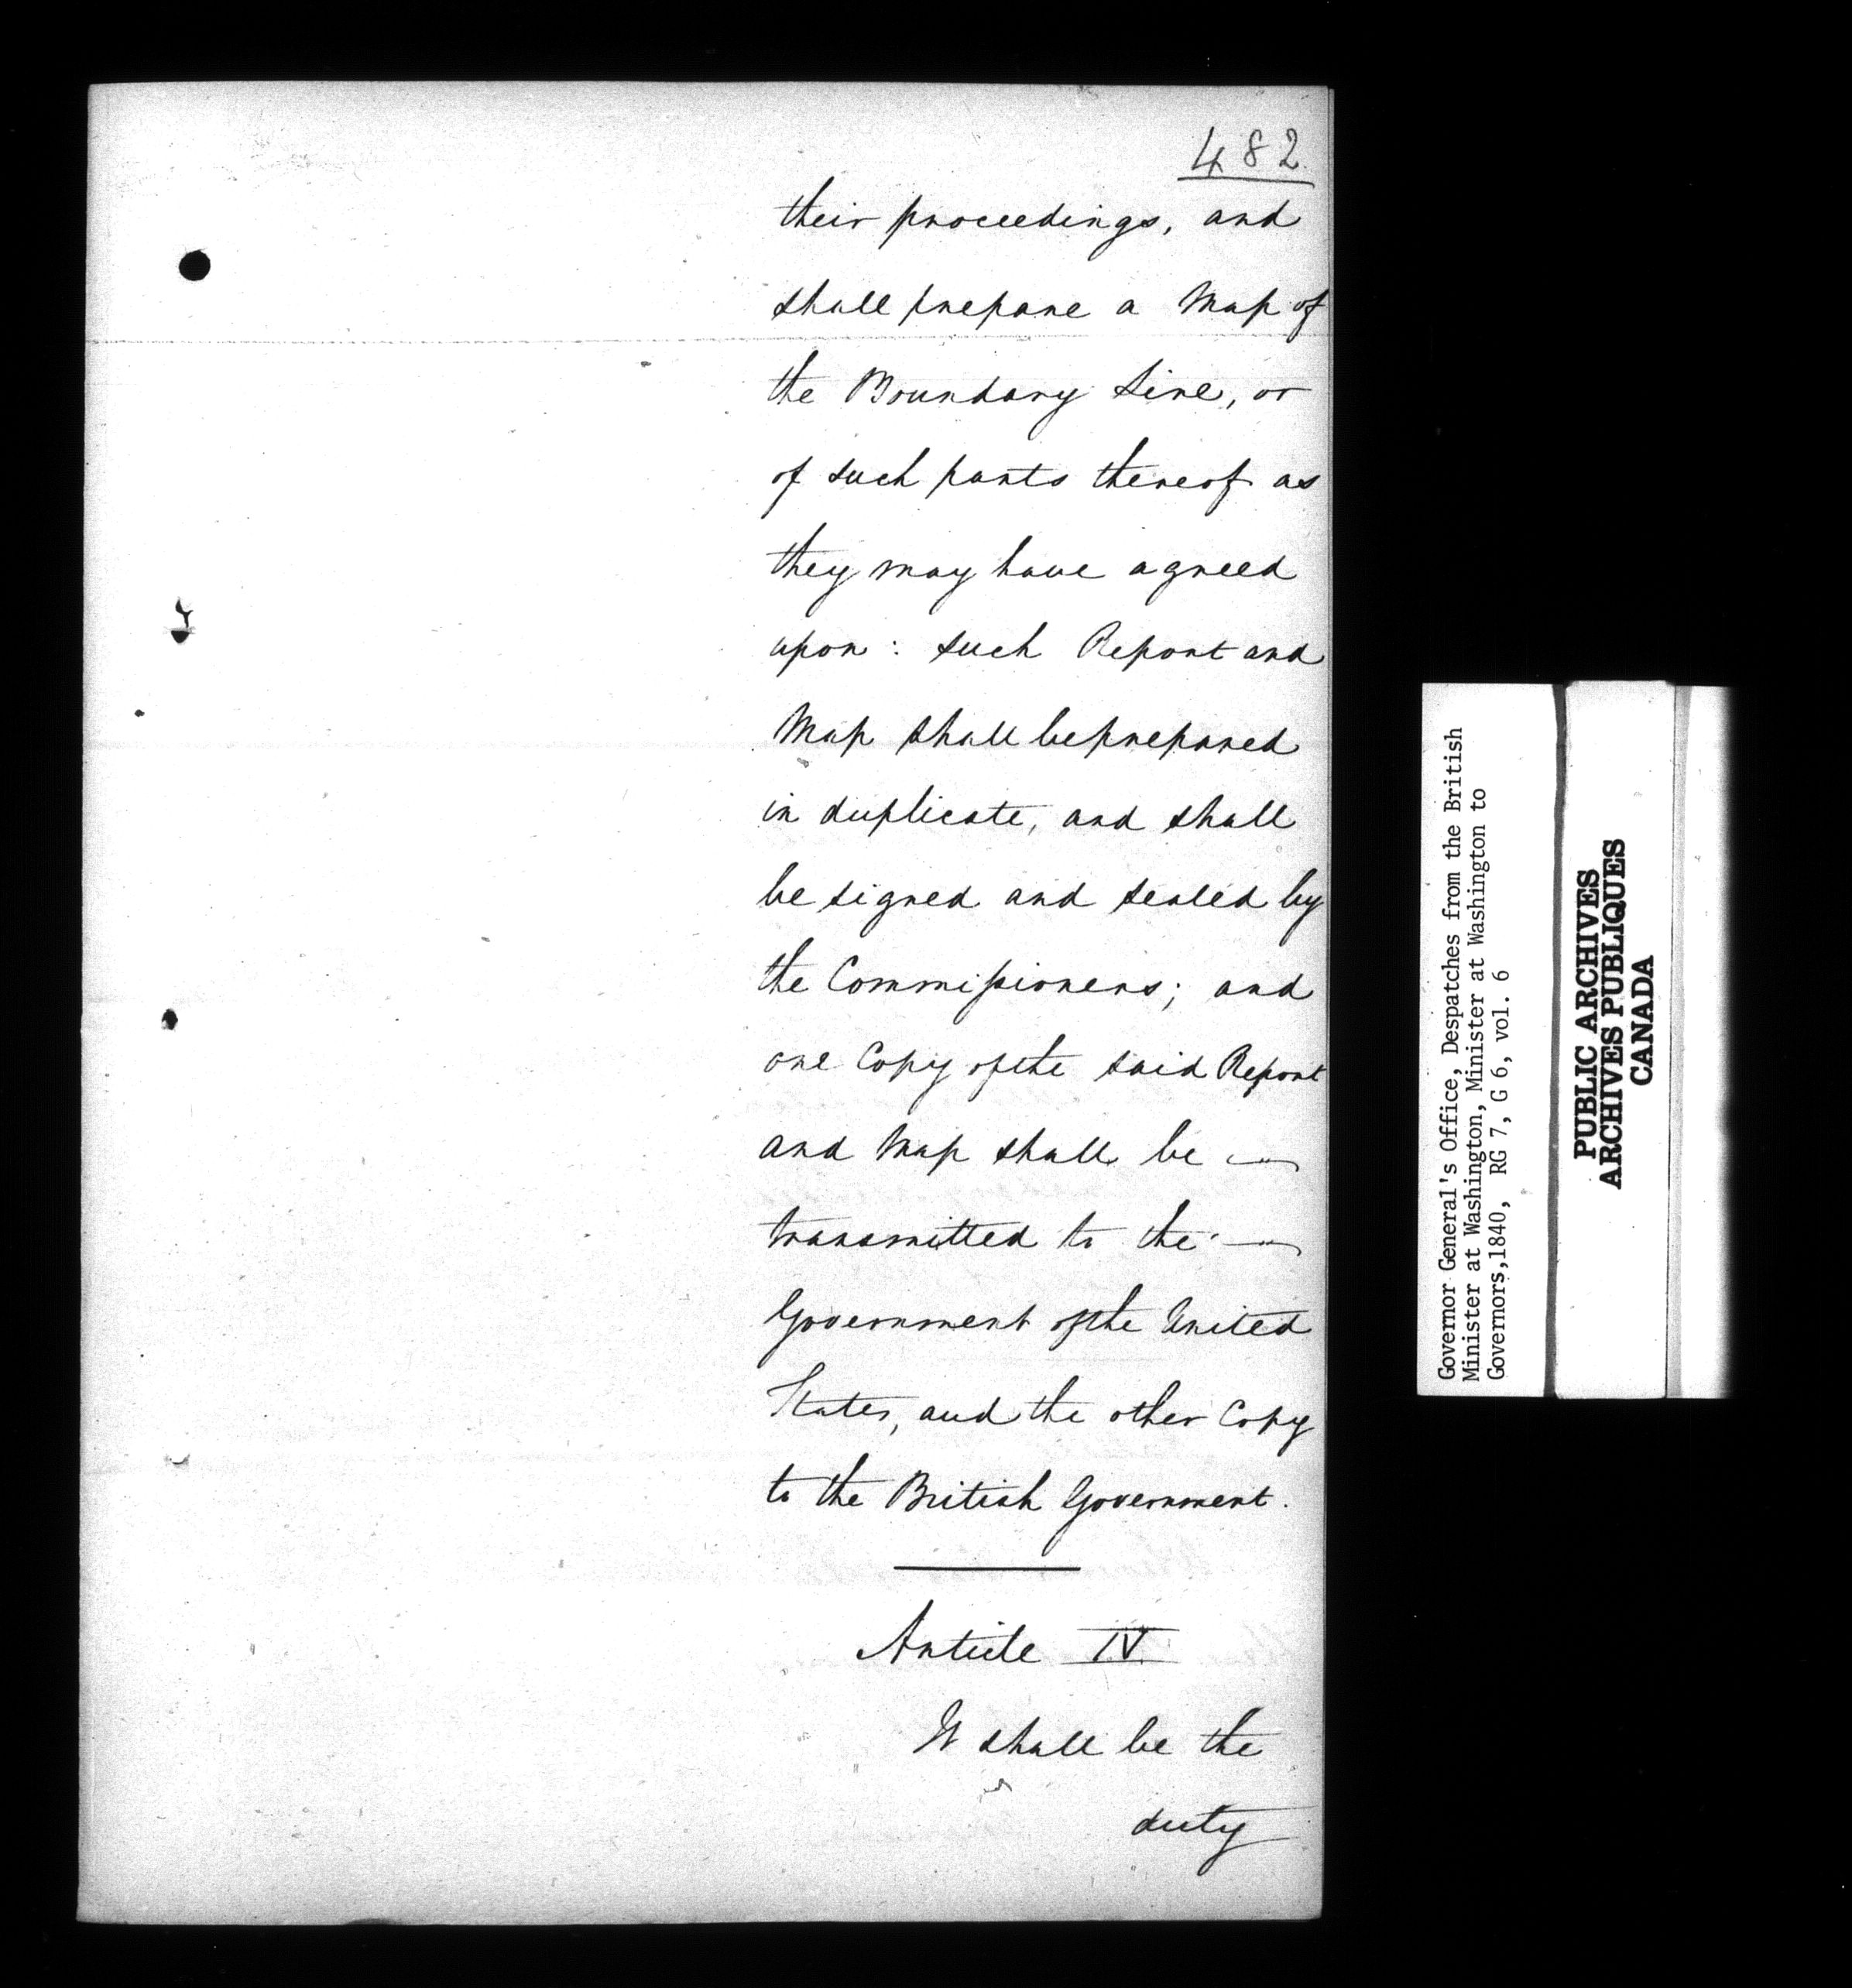 482.
their proceedings, and
shall prepare a Map of
the Boundary Line, or
of such parts thereof as
they may have agreed
upon: such Report and
Map shall be prepared
in duplicate, and shall
be signed and sealed by
the Commissioners; and
one Copy of the said Report
and Map shall be —
transmitted to the —
Government of the United
States, and the other Copy
to the British Government.
Article IV.
It shall be the
duty
Governor General's Office, Despatches from the British
Minister at Washington, Minister at Washington to
Governors,1840, RG 7, G 6, vol. 6
PUBLIC ARCHIVES
ARCHIVES PUBLIQUES
CANADA